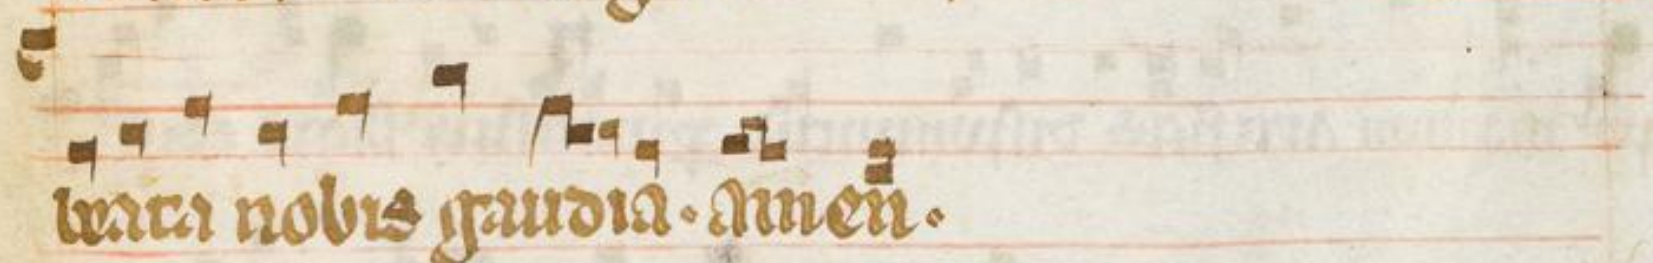 beata nobis gaudia. amen.